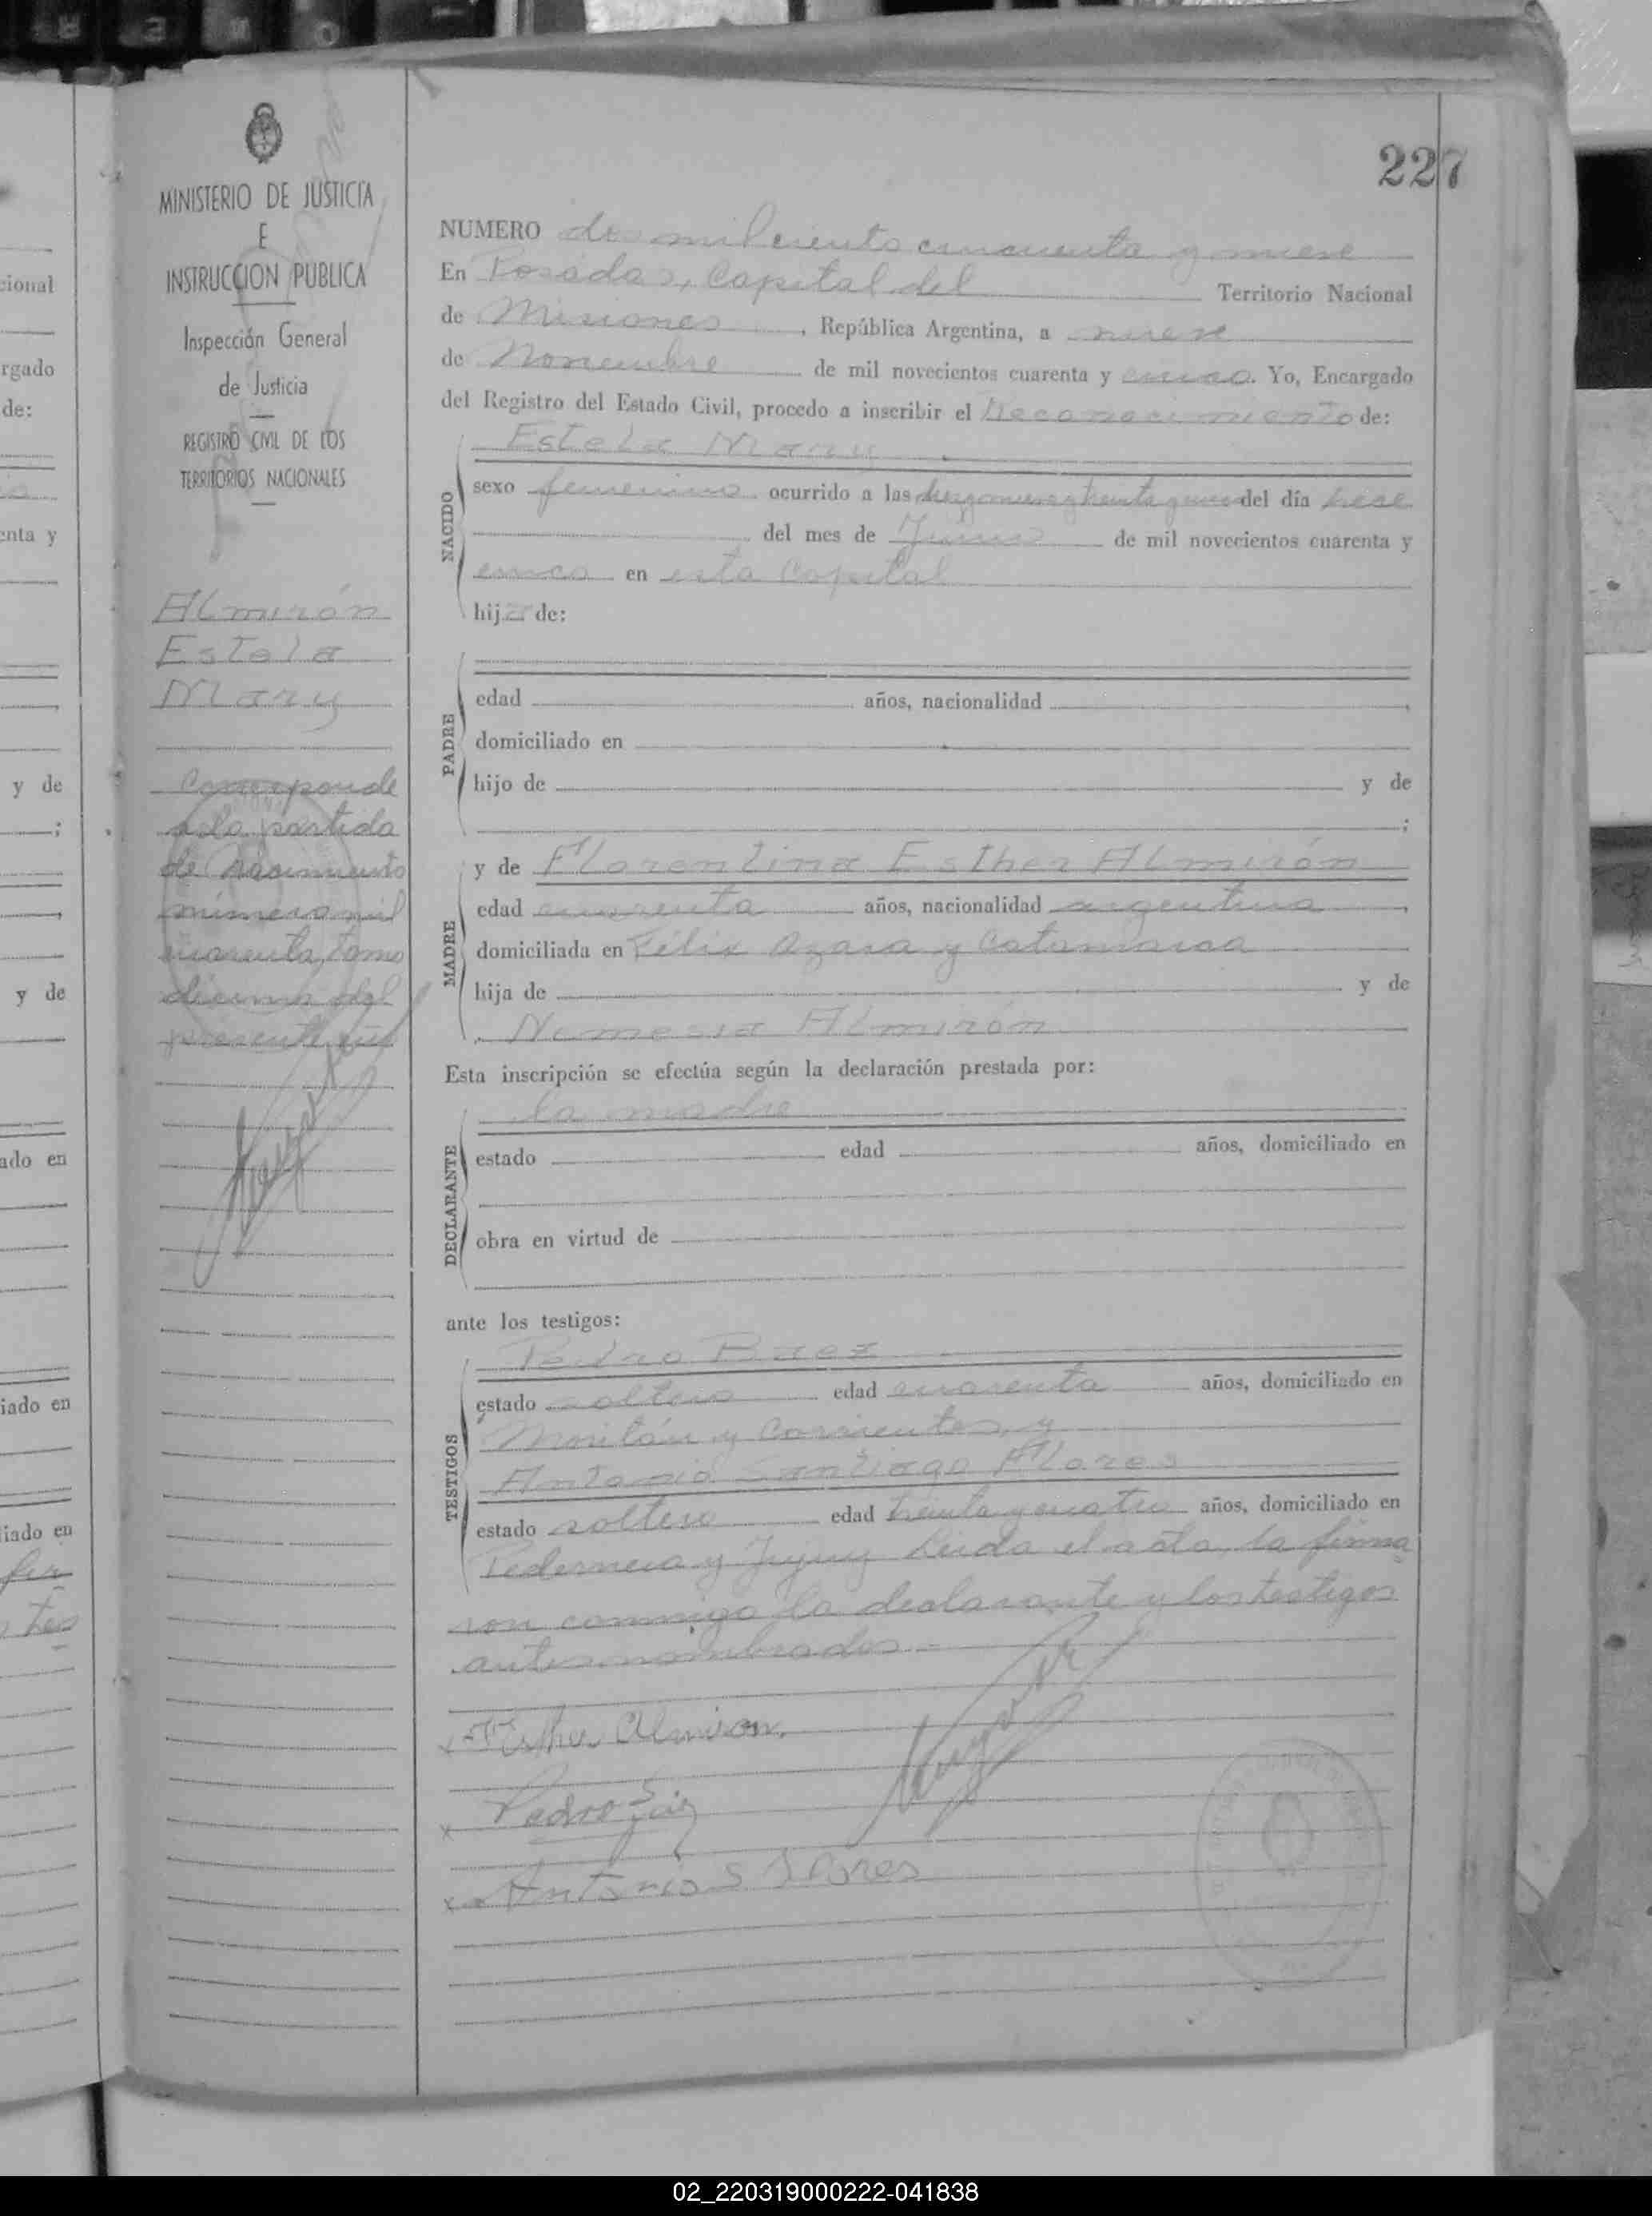 227
MINISTERIO DE JUSTICIA
E
INSTRUCCION PUBLICA
Inspección General
de Justicia
REGISTRO CIVIL DE LOS
TERRITORIOS NACIONALES
Almirón
Estela
Mary
Corresponde
a la partida
de Nacimiento
número mil
cuarenta, tomo
décimo del
presente año
NUMERO dos mil ciento cincuenta y nueve
En Posadas, Capital del Territorio Nacional
de Misiones, República Argentina, a nueve
de Noviembre de mil novecientos cuarenta y cinco. Yo, Encargado
del Registro del Estado Civil, procedo a inscribir el Reconocimiento de:
Estela Mary
NACIDO
sexo femenino ocurrido a las del día trece
del mes de Junio de mil novecientos cuarenta y
cinco en esta Capital
hija de:
PADRE
edad años, nacionalidad
domiciliado en
hijo de y de
;
MADRE
y de Florentina Esther Almirón
edad cuarenta años, nacionalidad argentina,
domiciliada en Félix Azara y Catamarca
hija de y de
Nemesia Almirón
Esta inscripción se efectúa según la declaración prestada por:
la madre
DECLARANTE
estado edad años, domiciliado en
obra en virtud de
ante los testigos:
TESTIGOS
Pedro Baez
estado soltero edad cuarenta años, domiciliado en
y Corrientes, y
Antonio Santiago Flores
estado soltero edad treinta y cuatro años, domiciliado en
Pedernera y Jujuy Leida el acta, la firma
ron conmigo la declarante y los testigos
antes nombrados.=
x F Esther Almiron.
x Pedro
x Antonio S Flores
cional
rgado
de:
enta y
y de
;
y de
ado en
iado en
iado en
02_220319000222-041838